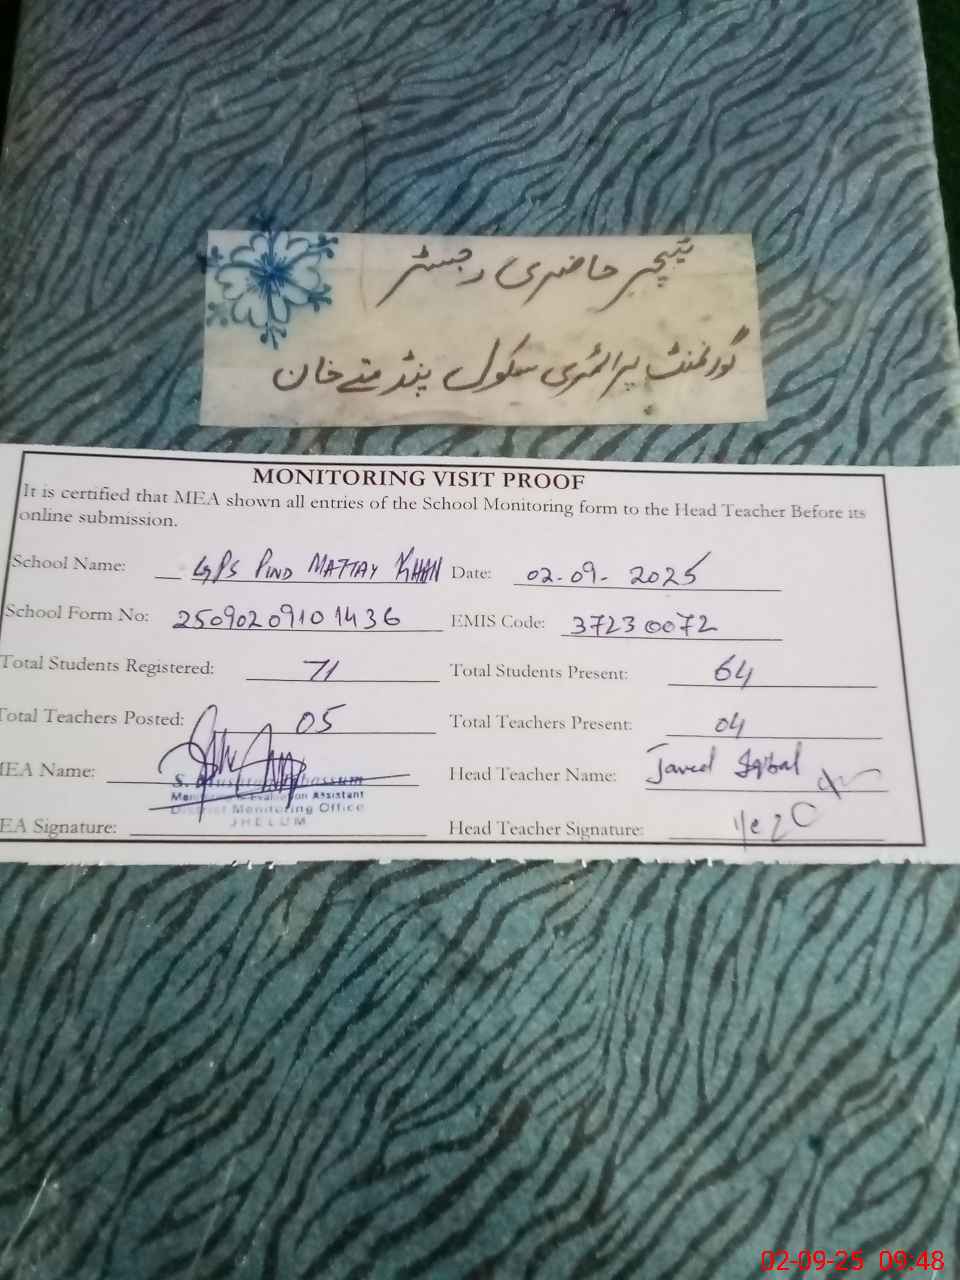 ٹیچر حاضری رجسٹر
گورنمنٹ پرائمری سکول پنڈ متے خان
MONITORING VISIT PROOF
It is certified that MEA shown all entries of the School Monitoring form to the Head Teacher Before its
online submission.
School Name: GPS PIND MATTAY KHAN Date: 02-09-2025
School Form No: 25090209101436 EMIS Code: 37230072
Total Students Registered: 71 Total Students Present: 64
Total Teachers Posted: 05 Total Teachers Present: 04
MEA Name: Head Teacher Name: Javed Iqbal
S.
Evaluation Assistant
District Monitoring Office
JHELUM
EA Signature: Head Teacher Signature:
02-09-25 09:48